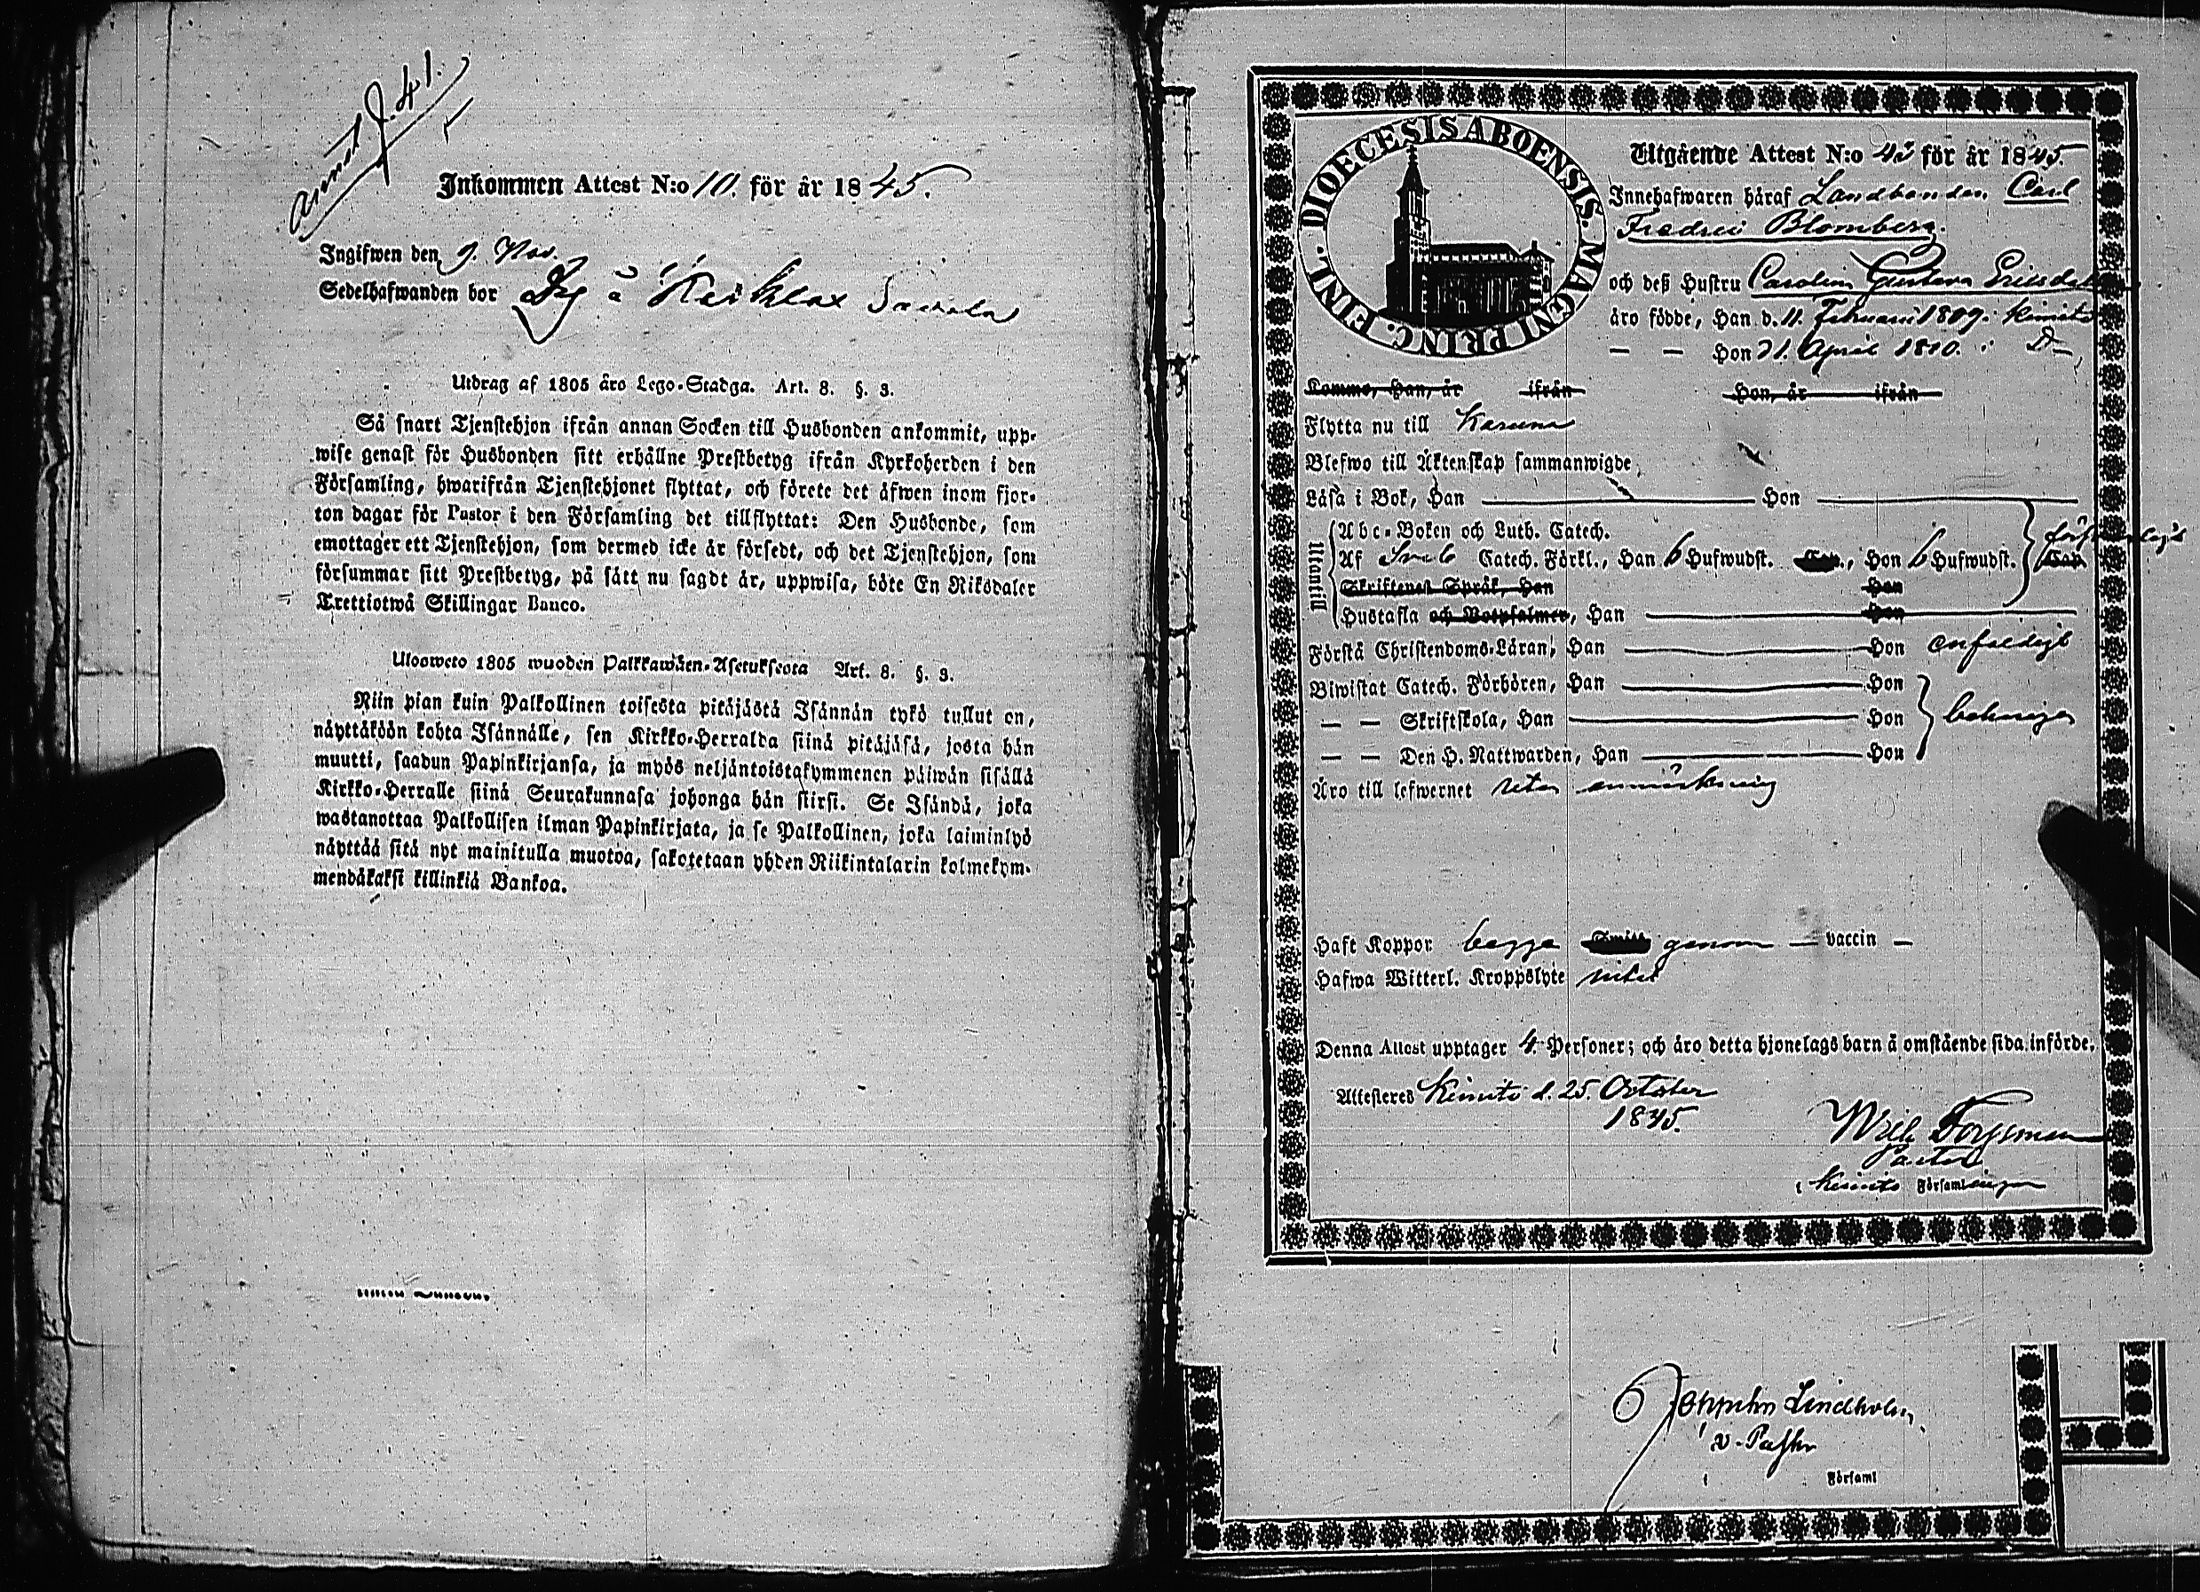 annot. p. 41.
Inkommen Attest N:o 10. för år 1845.
Ingifwen den 9. Nov.
Sedelhafwanden bor å
Utdrag af 1805 åro Lego-Stadga. Art. 8. §. 3.
Så snart Tjenstehjon ifrån annan Socken till Husbonden ankommit, upp-
wise genast för Husbonden sitt erhållne Prestbetyg ifrån Kyrkoherden i den
Församling, hwarifrån Tjenstehjonet flyttat, och förete det äfwen inom fjor-
ton dagar för Pastor i den Församling det tillflyttat: Den Husbonde, som
emottager ett Tjenstehjon, som dermed icke är försedt, och det Tjenstehjon, som
försummar sitt Prestbetyg, på sätt nu sagdt är, uppwisa, böte En Riksdaler
Trettiotwå Skillingar Banco.
Ulosweto 1805 wuoden Palkkawäen-Asetuksesta Art. 8. §. 3.
Niin pian kuin Palkollinen toisesta pitäjästä Isännän tykö tullut on,
näyttäköön kohta Isännälle, sen Kirkko-Herralda siinä pitäjäsä, josta hän
muutti, saadun Papinkirjansa, ja myös neljäntoistakymmenen päiwän sisällä
Kirkko-Herralle siinä Seurakunnasa johonga hän siirsi. Se Isändä, joka
wastanottaa Palkollisen ilman Papinkirjata, ja se Palkollinen, joka laiminlyö
näyttää sitä nyt mainitulla muotoa, sakotetaan yhden Riikintalarin kolmekym-
mendäkaksi killinkiä Bankoa.
FINL. DIOECESIS ABOENSIS. MAGNI PRINC.
Utgående Attest N:o 43 för år 1845.
Innehafwaren häraf Landbonden Carl
Fredric Blomberg.
och deß Hustru Carolin Gustava Ericsdotter
äro födde, Han d. 11. Februari 1809. i Kimito
— — Hon 21. April 1810. i D—
Komne, Han, år ifrån Hon, år ifrån
Flytta nu till Karuna
Blefwo till Äktenskap sammanwigde
Läsa i Bok, Han Hon
Utantill
Abc-Boken och Luth. Catech.
Af Catech. Förkl., Han 6 Hufwudst., Hon 6 Hufwudst.
Skriftenes Språk, Han Hon
Hustafla och Botpsalmer, Han Hon
Förstå Christendoms-Läran, Han Hon enfaldigt
Biwistat Catech. Förhören, Han Hon
— — Skriftskola, Han Hon
— — Den H. Nattwarden, Han Hon
Äro till lefwernet utan anmärkning
Haft Koppor begge genom — vaccin —
Hafwa Witterl. Kroppslyte intet
Denna Attest upptager 4 Personer; och äro detta hjonelags barn å omstående sida införde.
Attesteres Kimito d. 25. October
1845.
Wilh. Forssman
Pastor
i Kimito Församlingen
Lindholm
v. Pastor
i Församl